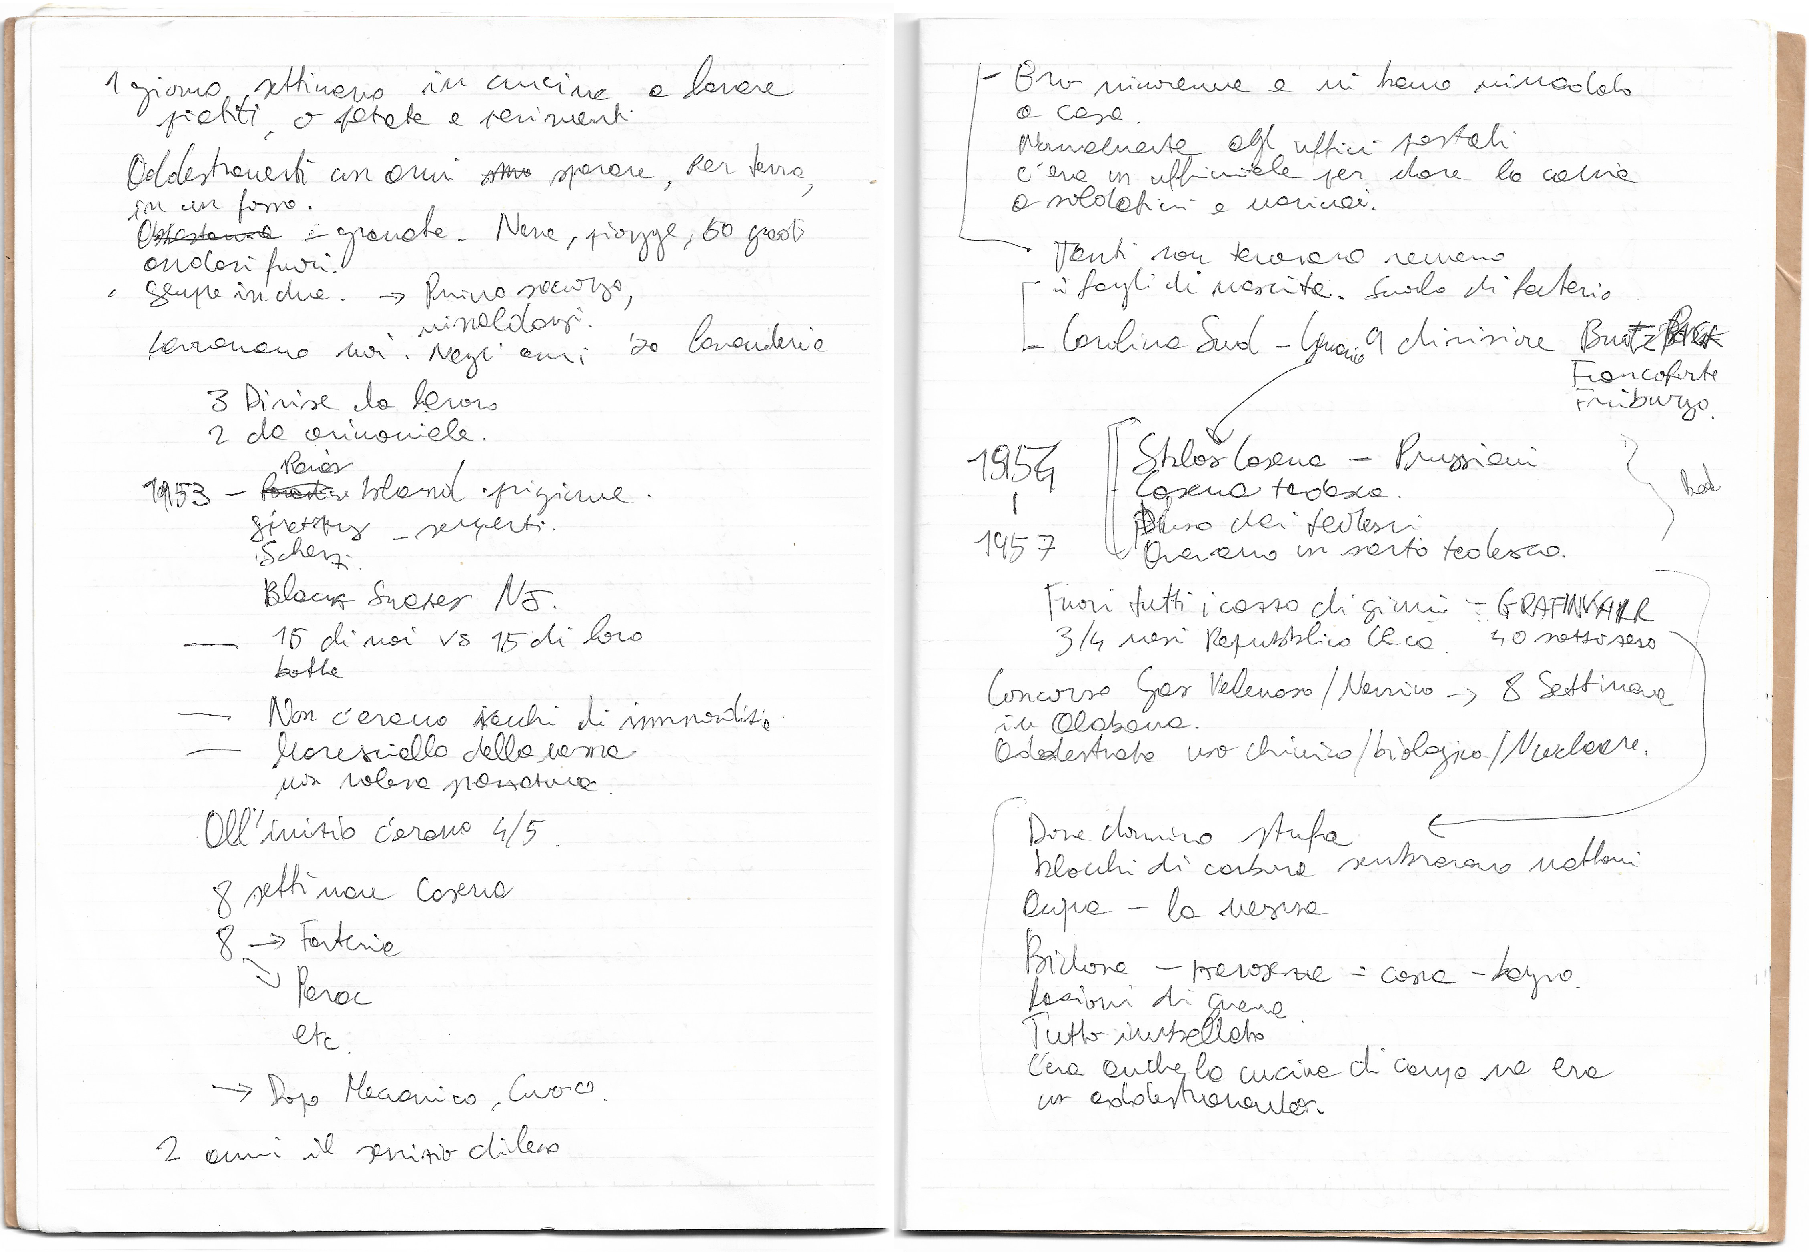 1 giorno settimana in cucina a lavare
piatti, o patate e pavimenti
Addestramenti con armi sparare, per terra,
in un fosso.
granate - Neve, piogge, 50 gradi
andavi fuori.
Sempre in due. → Primo soccorso,
riscaldarsi.
Lavavano noi. Negli anni '50 lavanderia
3 Divise da lavoro
2 da cerimoniale.
Paris
1953 - Island prigione.
- serpenti.
Scherzi.
Black NJ.
— 15 di noi vs 15 di loro
botte
— Non c'erano secchi di immondizia.
— Maresciallo della mensa
non voleva spazzatura.
All'inizio c'erano 4/5
8 settimane Caserma
8 → Fanteria
↘ Parac
etc.
→ Dopo Meccanico, Cuoco.
2 anni il servizio di leva
- Ero minorenne e mi hanno rimandato
a casa.
Normalmente agli uffici postali
c'era un ufficiale per dare la caccia
a soldatini e marinai.
Tanti non tenevano nemmeno
i fogli di nascita. Scuola di fanteria
- Carolina Sud - Germania 9 divisione Butzbach
Francoforte
Friburgo.
1954 Caserma - Prussiani
Caserma tedesca.
| dai tedeschi
1957 Avevano un sarto tedesco.
Fuori tutti i casso di giorni = GRAFINVAHR
3/4 mesi Repubblica Ceca. 40 sottozero
Concorso Gas Velenoso/Nervino → 8 Settimane
in Alabama.
Addestrato uso chimico/biologico/Nucleare.
Dove dormivo stufa
blocchi di carbone sembravano mattoni
Acqua - la neve
Bidone - benzina = casa - bagno.
Razioni di guerra
Tutto imballato
C'era anche la cucina di campo ma era
un addestramento.